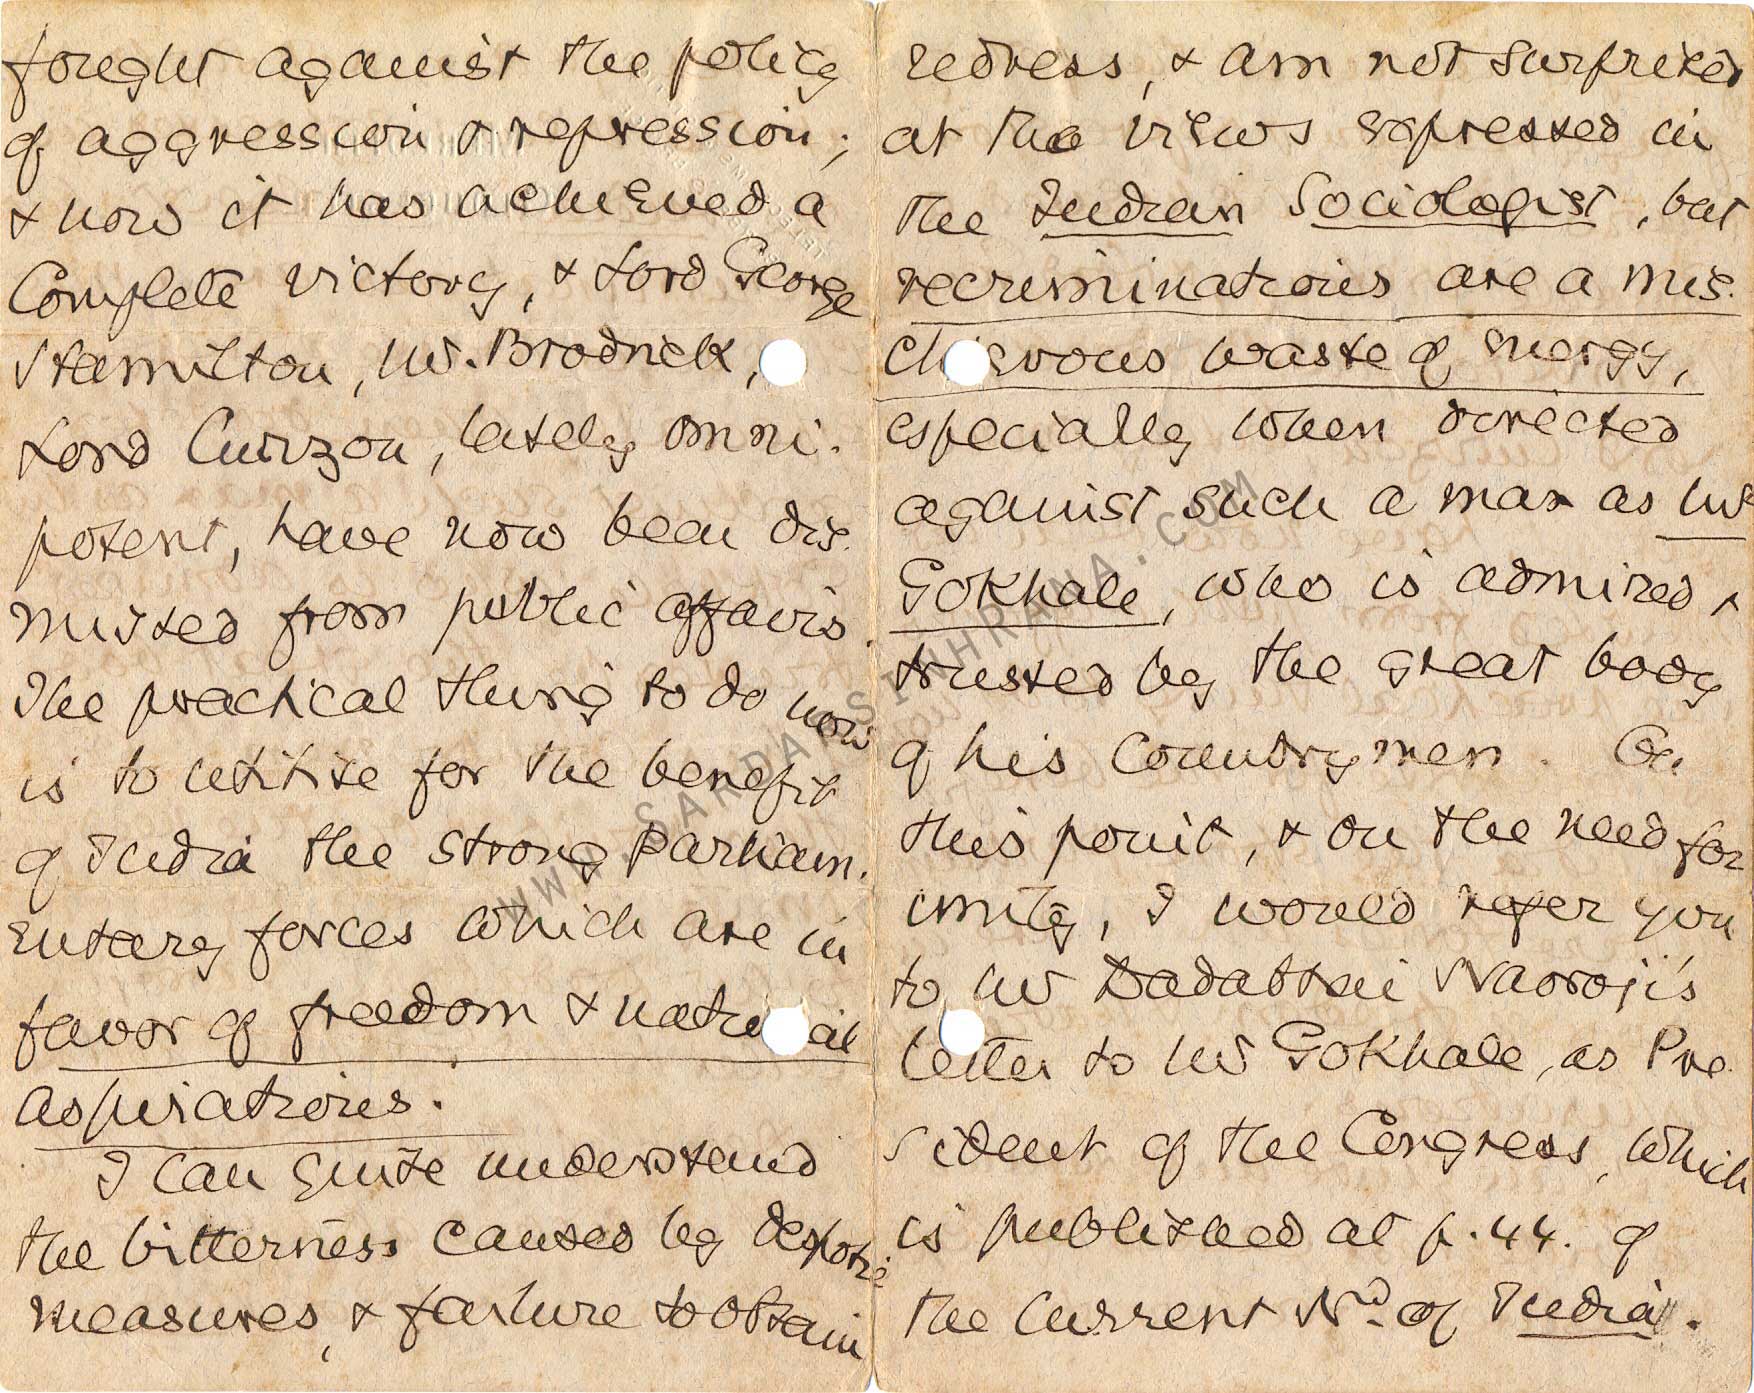 fought against the policy
of aggression & repression;
& now it has achieved a
Complete victory, & Lord George
Hamilton, Mr. Brodrick,
Lord Curzon, lately omni-
potent, have now been dis-
missed from public affairs.
The practical thing to do now
is to utilise for the benefit
of India the strong Parliam-
entary forces which are in
favor of freedom & national
aspirations.
I can quite understand
the bitterness caused by despotic
measures, & failure to obtain
redress, & am not surprised
at the views expressed in
the Indian Sociologist, but
recriminations are a mis-
chievous waste of energy,
especially when directed
against such a man as Mr
Gokhale, who is admired &
trusted by the great body
of his Countrymen. On
this point, & on the need for
unity, I would refer you
to Mr Dadabhai Naoroji's
letter to Mr Gokhale, as Pre-
sident of the Congress, which
is published at p. 44. of
the Current No. of India.
WWW.SARDARSINHRANA.COM